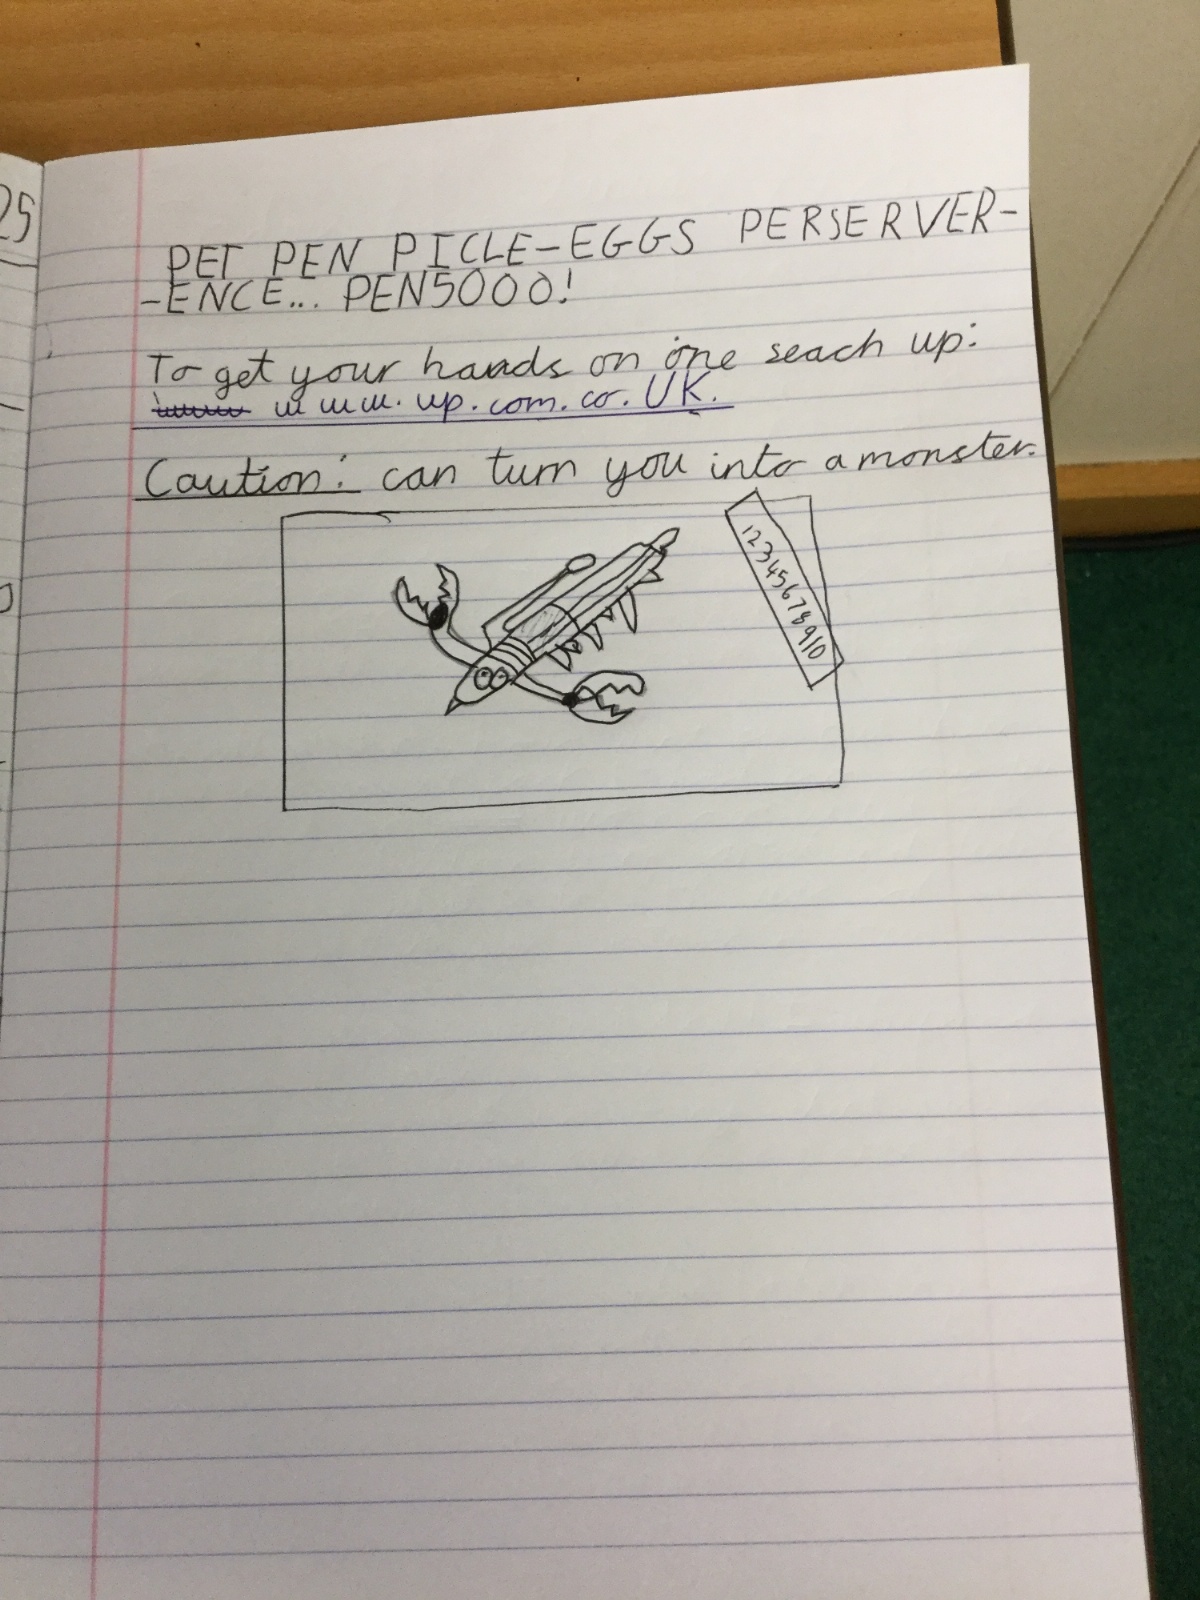 25
PET PEN PICLE-EGGS PERSERVER-
-ENCE... PEN5000!
To get your hands on one seach up:
www.up.com.co.UK.
Caution: can turn you into a monster.
12345678910